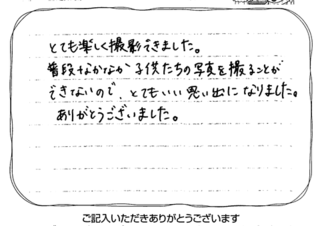 とても楽しく撮影できました。
普段なかなか子供たちの写真を撮ることが
できないので、とてもいい思い出になりました。
ありがとうございました。
ご記入いただきありがとうございます